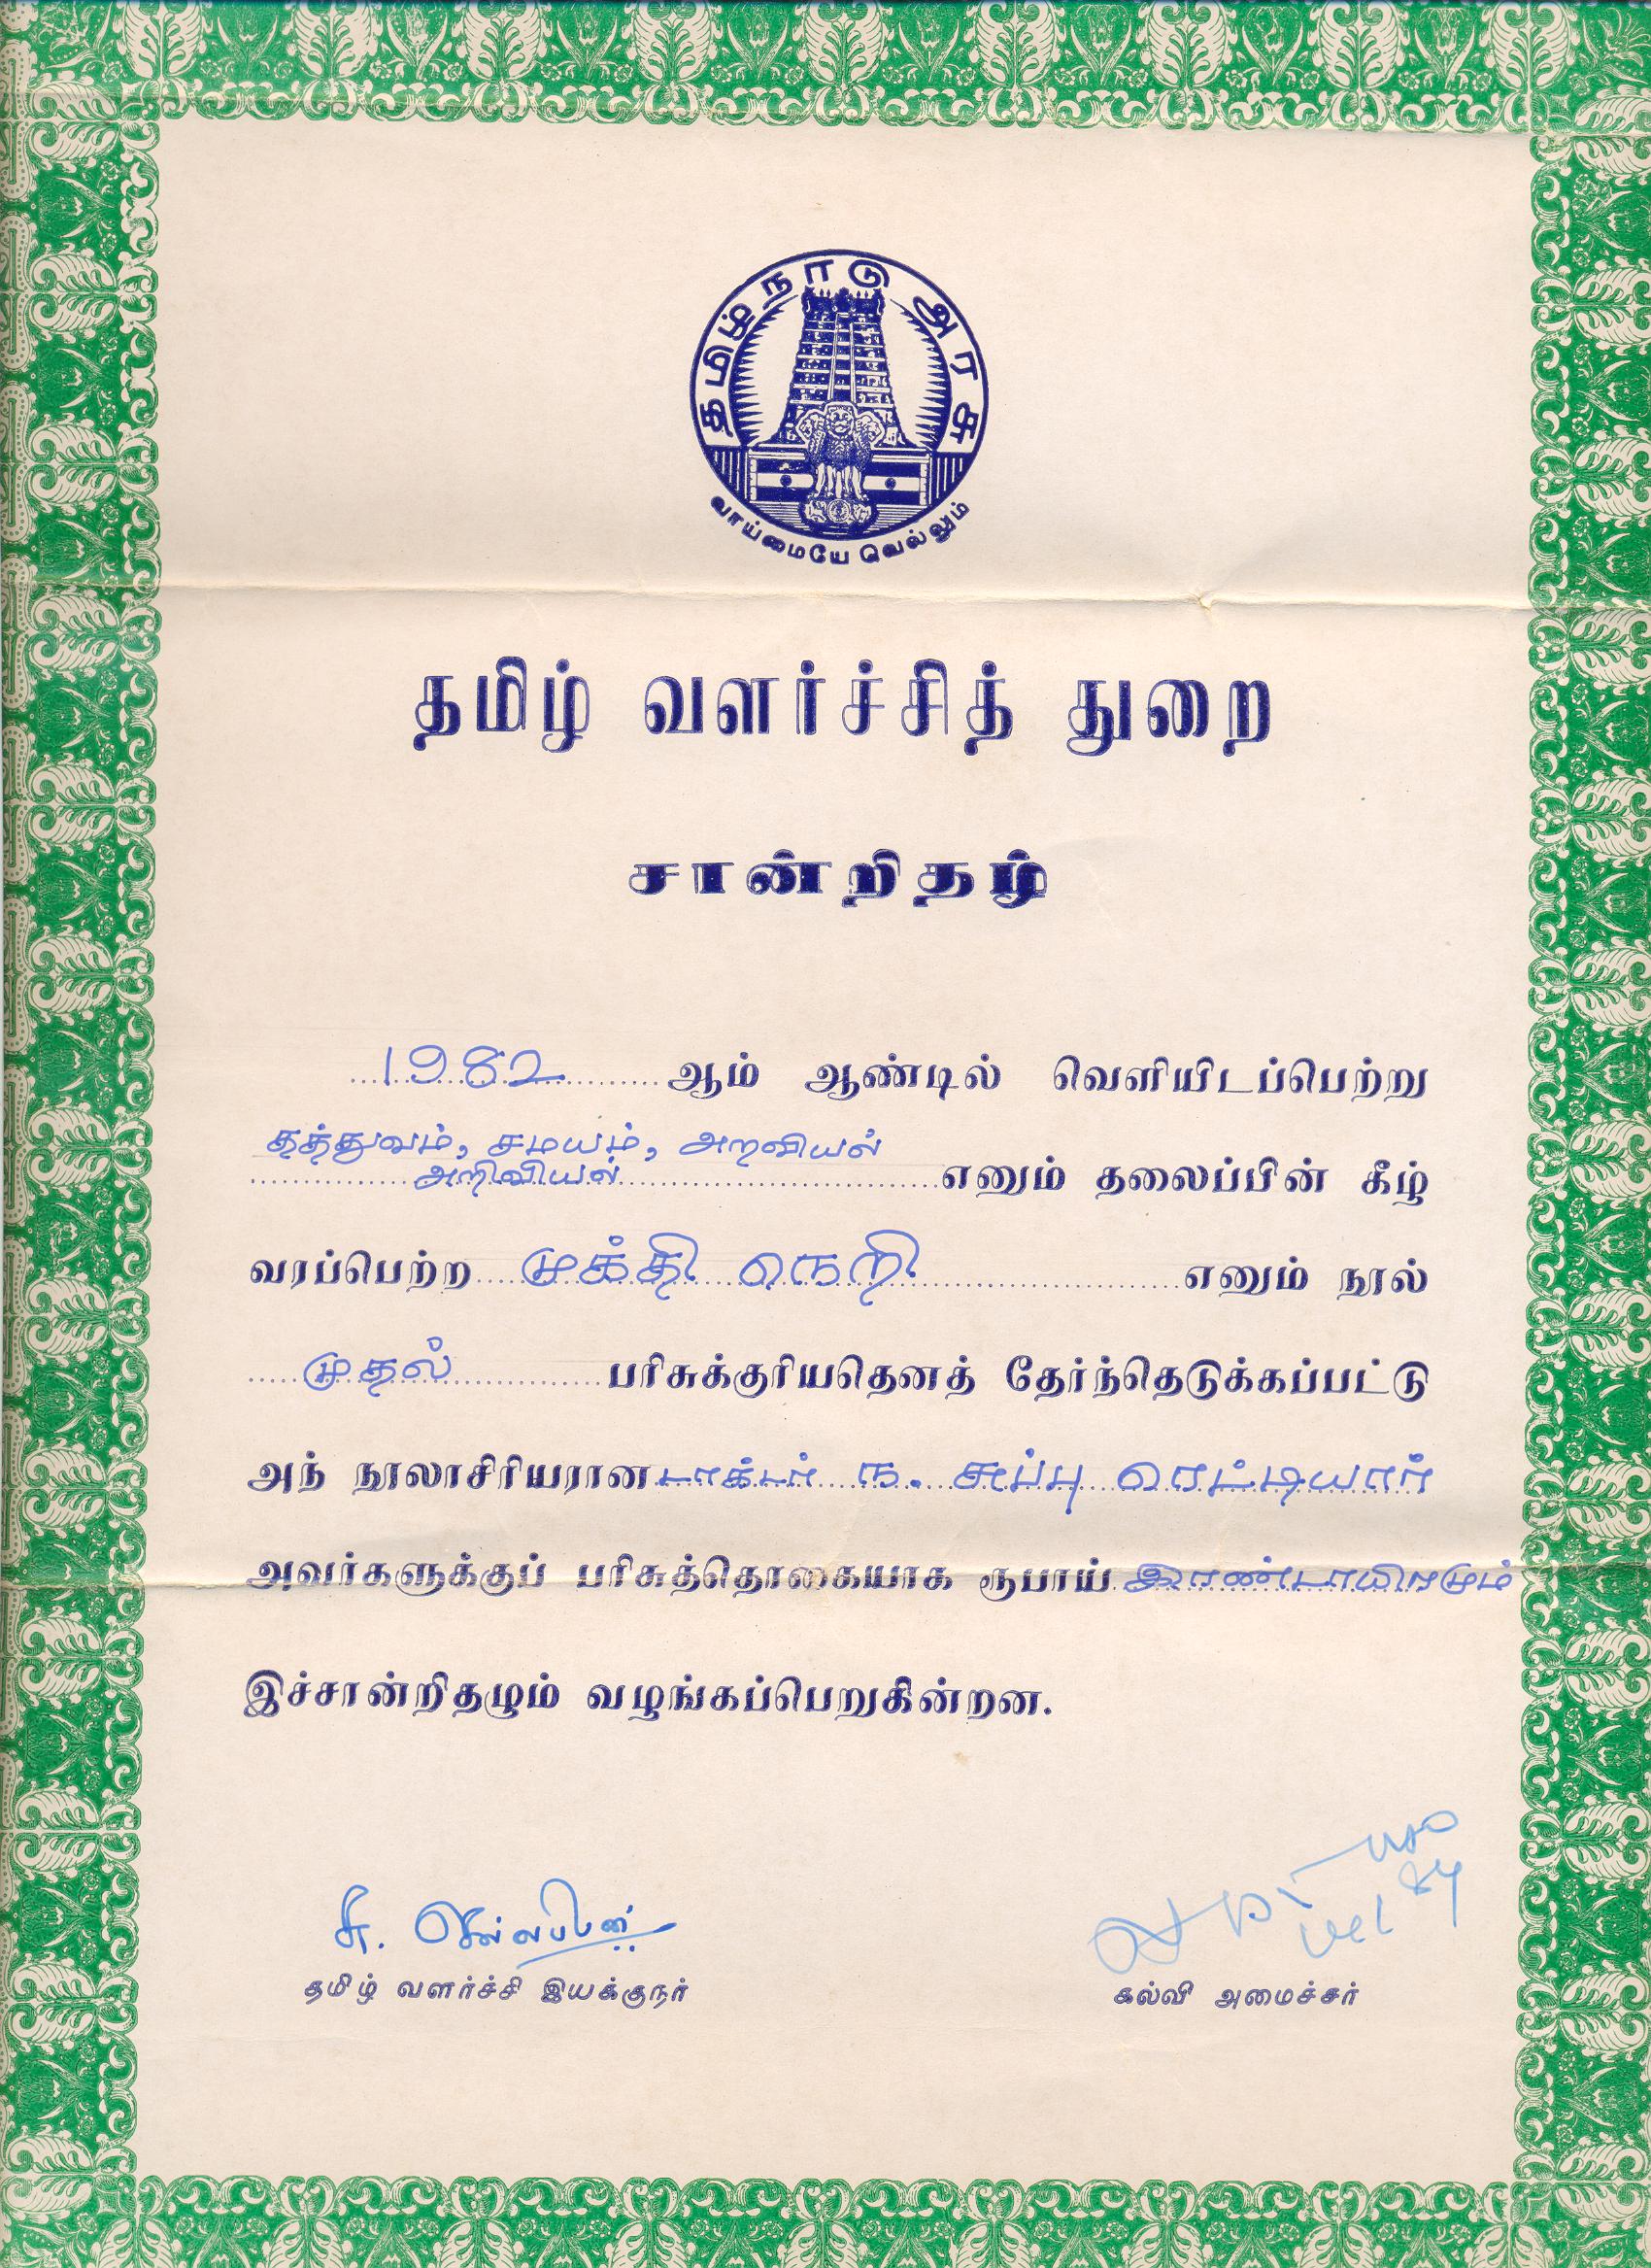 தமிழ்நாடு அரசு
வாய்மையே வெல்லும்
தமிழ் வளர்ச்சித் துறை
சான்றிதழ்
1982 ஆம் ஆண்டில் வெளியிடப்பெற்று
தத்துவம், சமயம், அறவியல்
அறிவியல் எனும் தலைப்பின் கீழ்
வரப்பெற்ற முக்தி நெறி எனும் நூல்
முதல் பரிசுக்குரியதெனத் தேர்ந்தெடுக்கப்பட்டு
அந் நூலாசிரியரான டாக்டர் ந. சுப்பு ரெட்டியார்
அவர்களுக்குப் பரிசுத்தொகையாக ரூபாய் இரண்டாயிரமும்
இச்சான்றிதழும் வழங்கப்பெறுகின்றன.
தமிழ் வளர்ச்சி இயக்குநர்
கல்வி அமைச்சர்